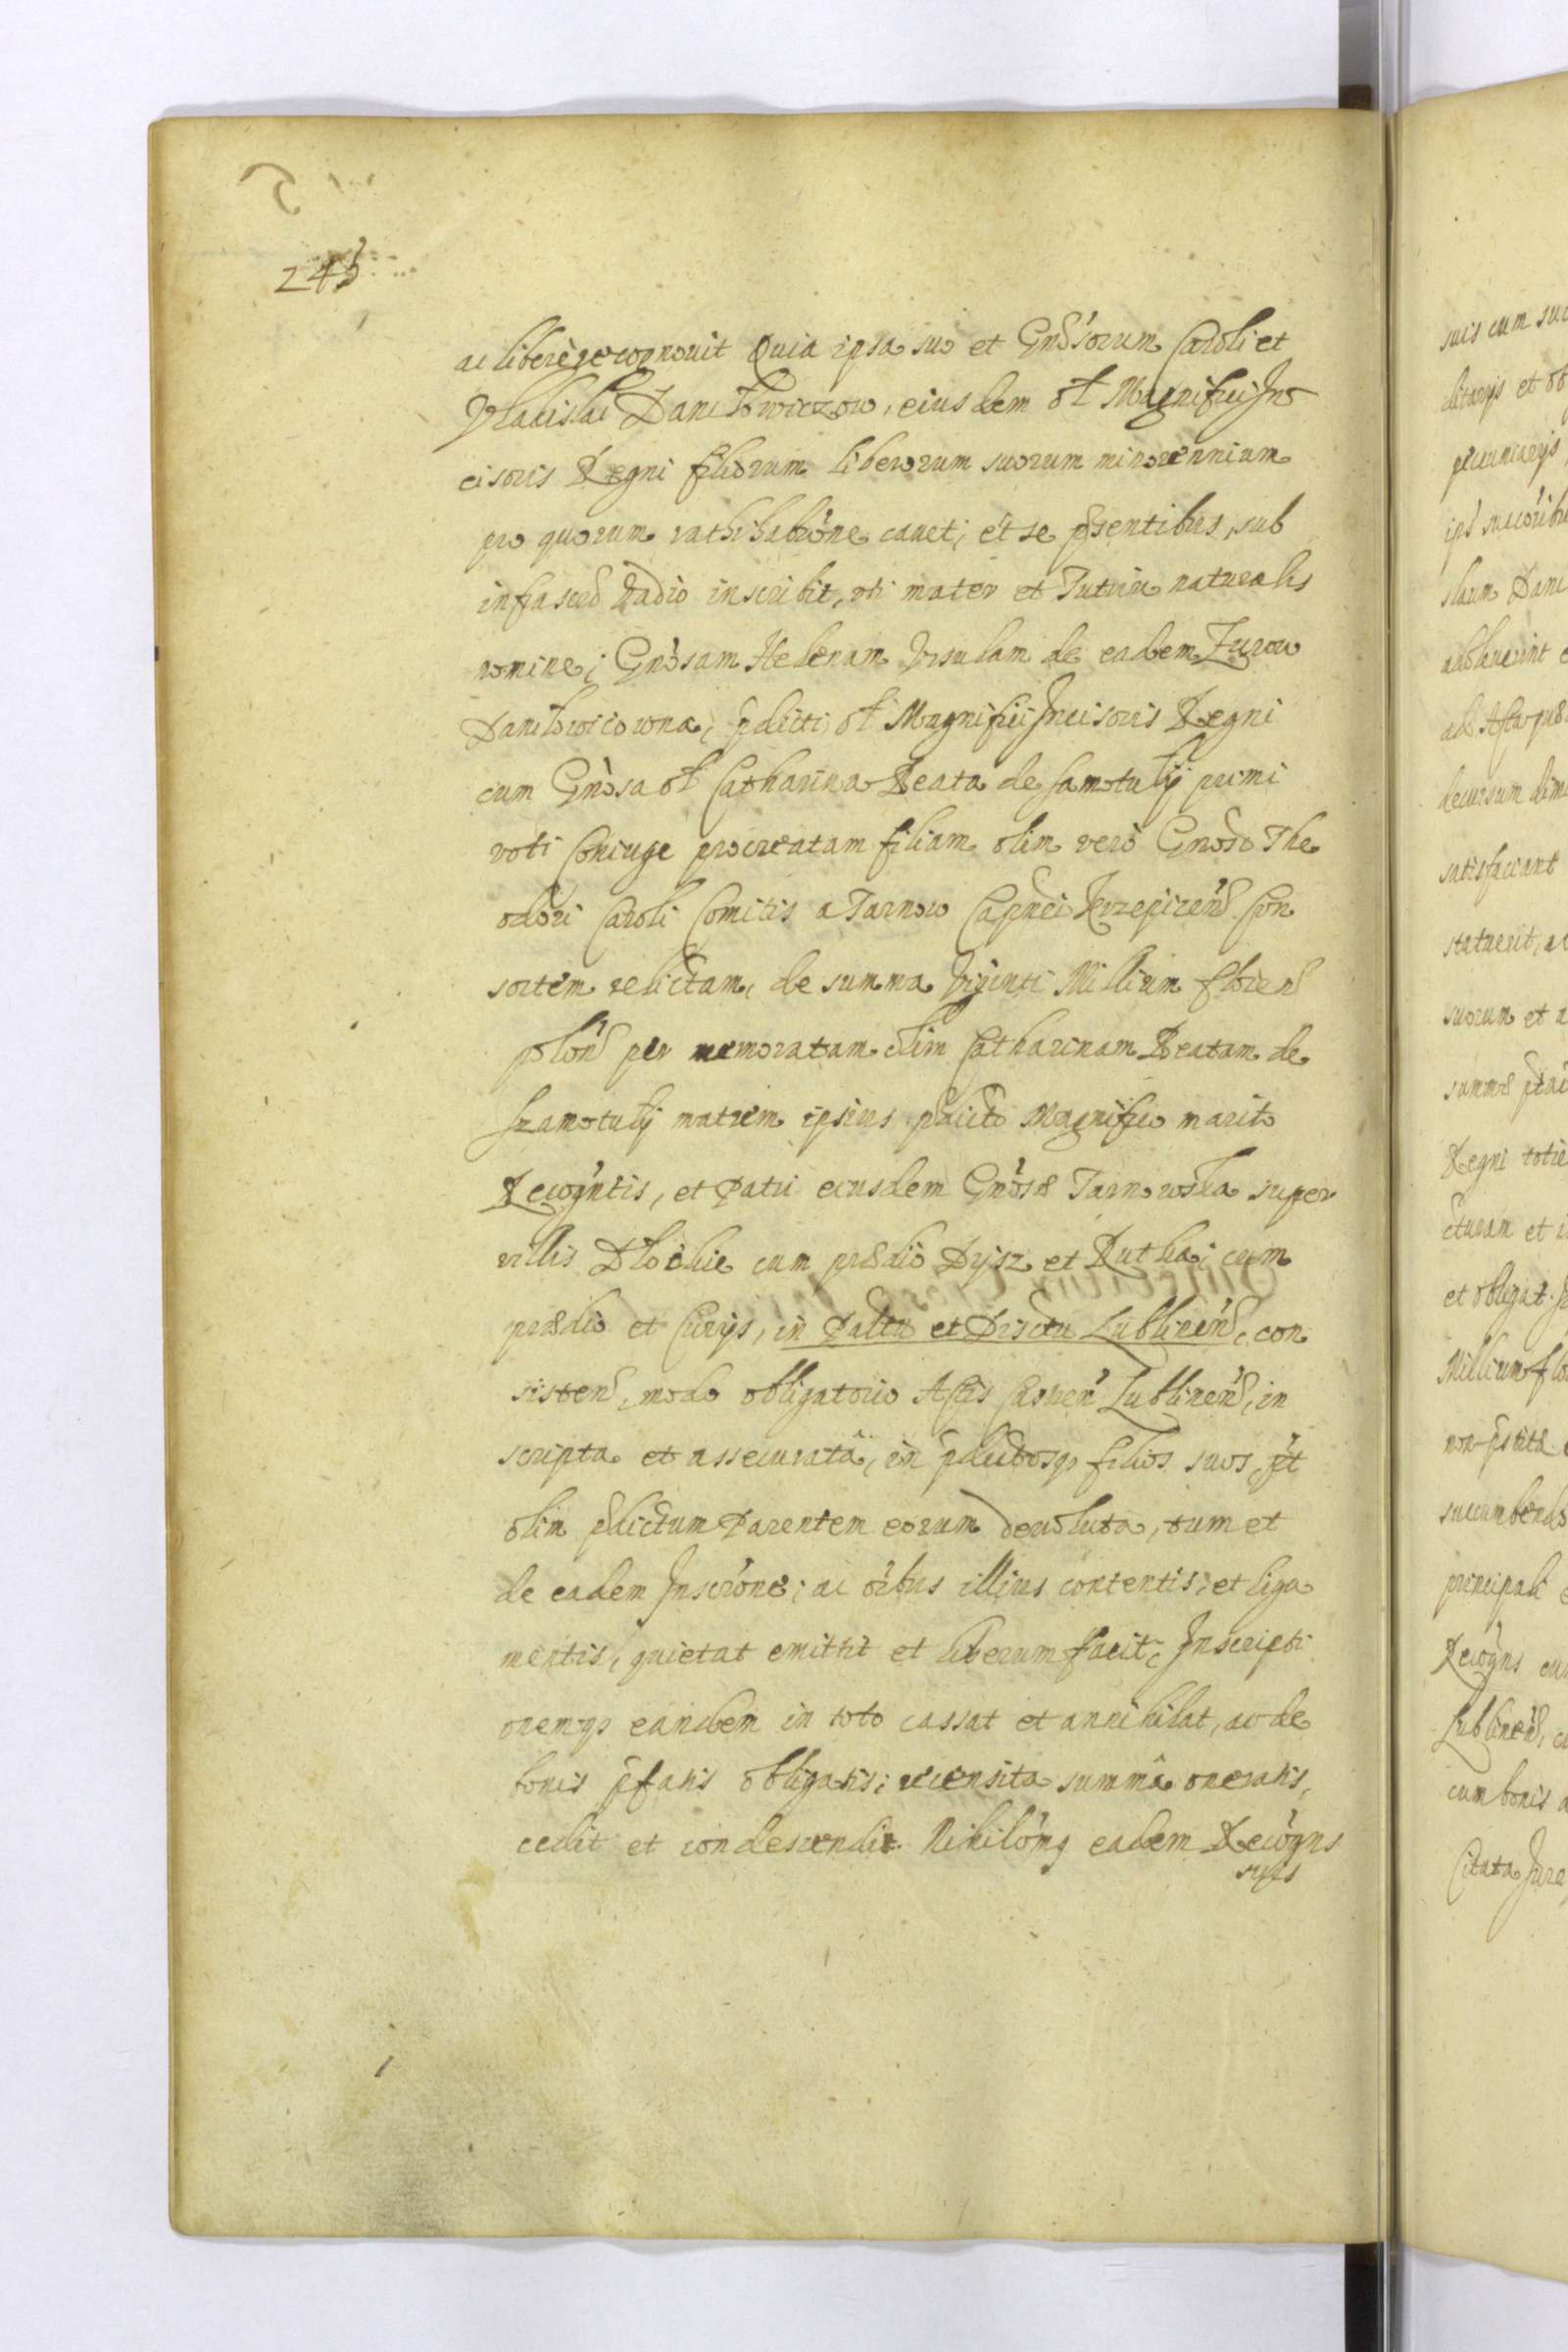 245
ac liberè recognovit Quia ipsa suo et Gnosorum Caroli et
Vladislai Daniłowiczow, eiusdem ol Magnifici In
cisoris Regni filiorum liberorum suorum minorennium
pro quorum rathihabne cavet, et se psentibus, sub
infrascr vadio inscribit, uti mater et Tutrix naturalis
nomine, Gnosam Helenam Ursulam de eadem Zurow
Daniłowicowna, pdicti ol Magnifici Incisoris Regni
cum Gnosa ol Catharina Beata de Samotuły primi
voti Coniuge procreatam filiam olim verò Gnoso The
odori Caroli Comitis a Tarnow Capnei Krzepicen Con
sortem relictam, de summa Viginti Millium floren
polon per memoratam olim Catharinam Beatam de
Szamotuły matrem ipsius pdicto Magnifico marito
Recogntis, et Patri eiusdem Gnosæ Tarnowska super
villis Dłochie cum prædio Dysz et Rutka, cum
prædio et Curijs, in Paltu et Disctu Lublinen, con
sisten, modo obligatorio Actis Castren Lublinen, in
scripta et assecurata, in pdictosq filios suos, pt
olim pdictum Parentem eorum devoluta, tum et
de eadem Inscrone, ac oibus illius contentis, et liga
mentis, quietat emittit et liberum facit, Inscripti
onemq eandem in toto cassat et annihilat, ac de
bonis pfatis obligatis, recensita summa oneratis,
cedit et condescendit. Nihilomq eadem Recogns
suis cum suc
ditarys et ob
pecuniarys
slaum Dani
satisfaciant
suorum et a
Regni totie
cturam et i
et obligat.
Millium flo
succumbend
principali
Recogns cum
Lublinen, c
cum bonis a
Citata Jure